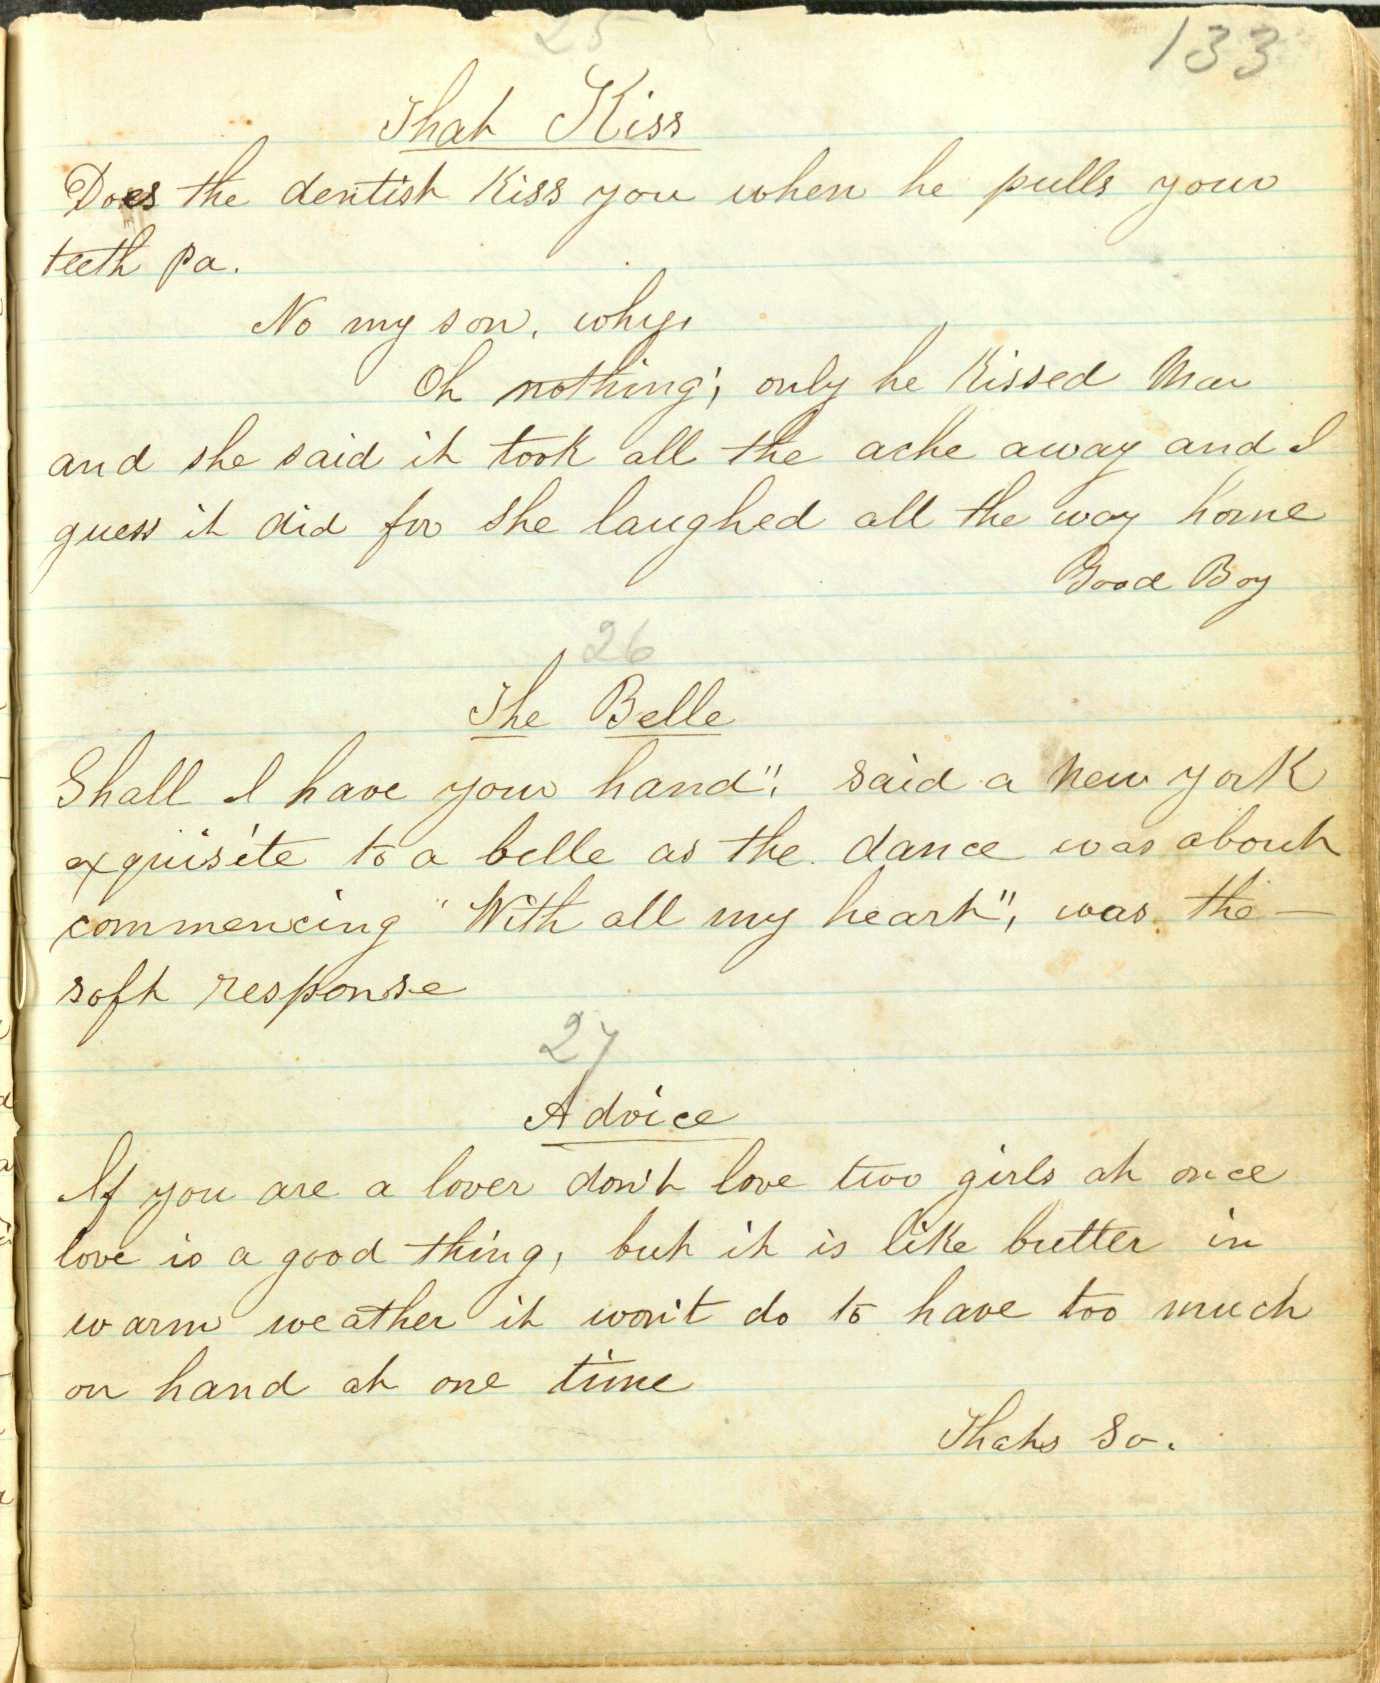 25
133
That Kiss
Does the dentist Kiss you when he pulls your
teeth pa.
No my son, why,
Oh nothing; only he Kissed Ma
and she said it took all the ache away and I
guess it did for she laughed all the way home
Good Boy
26
The Belle
Shall I have your hand", said a New York
exquisite to a belle as the dance was about
commencing "With all my heart", was the —
soft response
27
Advice
If you are a lover don't love two girls at once
love is a good thing, but it is like butter in
warm weather it won't do to have too much
on hand at one time
Thats So.